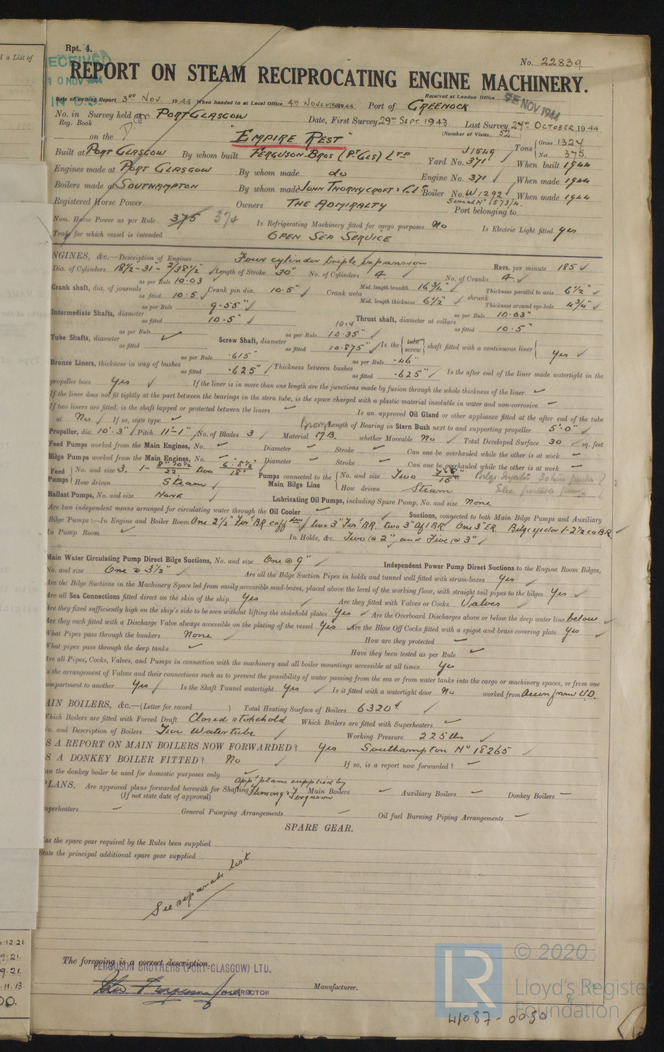 Rpt. 4.
No. 22839
REPORT ON STEAM RECIPROCATING ENGINE MACHINERY.
Received at London Office
Date of writing Report 3rd Nov. 1944 When handed in at Local Office 4th November 1944 Port of GREENOCK
No. in Survey held at PORT GLASGOW Date, First Survey 29th Sept. 1943. Last Survey 24th OCTOBER 1944
Reg. Book (Number of Visits 52)
on the "EMPIRE REST" Tons Gross 1324 Net 375
Built at PORT GLASGOW By whom built FERGUSON BROS (P. GLS) LTD Yard No. 371 When built 1944
Engines made at PORT GLASGOW By whom made do Engine No. 371 When made 1944
Boilers made at SOUTHAMPTON By whom made JOHN THORNYCROFT & Co Boiler No. W1292 When made 1944
Registered Horse Power Owners THE ADMIRALTY Port belonging to
Nom. Horse Power as per Rule 375 374 Is Refrigerating Machinery fitted for cargo purposes No Is Electric Light fitted yes
Trade for which vessel is intended OPEN SEA SERVICE
NGINES, &c.—Description of Engines Four cylinder triple expansion Revs. per minute 185
Dia. of Cylinders 18½-31-2/38½ Length of Stroke 30" No. of Cylinders 4 No. of Cranks 4
Crank shaft, dia. of journals as per Rule 10.03 as fitted 10.5 Crank pin dia. 10.5" Crank webs Mid. length breadth 16¾" Mid. length thickness 6½" shrunk Thickness parallel to axis 6½" Thickness around eye-hole 4¾"
Intermediate Shafts, diameter as per Rule 9.55" as fitted 10.5" Thrust shaft, diameter at collars as per Rule 10.03" as fitted 10.5"
Tube Shafts, diameter as per Rule as fitted Screw Shaft, diameter as per Rule 10.35" as fitted 10.875" Is the screw shaft fitted with a continuous liner Yes
Bronze Liners, thickness in way of bushes as per Rule .615 as fitted .625" Thickness between bushes as per Rule .46" as fitted .625" Is the after end of the liner made watertight in the
propeller boss Yes If the liner is in more than one length are the junctions made by fusion through the whole thickness of the liner
If the liner does not fit tightly at the part between the bearings in the stern tube, is the space charged with a plastic material insoluble in water and non-corrosive
If two liners are fitted, is the shaft lapped or protected between the liners Is an approved Oil Gland or other appliance fitted at the after end of the tube
No If so, state type Length of Bearing in Stern Bush next to and supporting propeller 5'-0"
Propeller, dia. 10'-3" Pitch 11'-1" No. of Blades 3 Material M.B. whether Moveable No Total Developed Surface 30 sq. feet
Feed Pumps worked from the Main Engines, No. Diameter Stroke Can one be overhauled while the other is at work
Bilge Pumps worked from the Main Engines, No. Diameter Stroke Can one be overhauled while the other is at work
Feed Pumps No. and size 3. How driven Steam Pumps connected to the Main Bilge Line No. and size Two How driven Steam
Ballast Pumps, No. and size None Lubricating Oil Pumps, including Spare Pump, No. and size None
Are two independent means arranged for circulating water through the Oil Cooler Suctions, connected to both Main Bilge Pumps and Auxiliary
Bilge Pumps:—In Engine and Boiler Room One 2½" For'd BR two 3" For'd BR. two 3" Aft BR One 3" ER
In Pump Room In Holds, &c. Two @ 2" and Five @ 3"
Main Water Circulating Pump Direct Bilge Suctions, No. and size One @ 9" Independent Power Pump Direct Suctions to the Engine Room Bilges,
No. and size One @ 3½" Are all the Bilge Suction Pipes in holds and tunnel well fitted with strum-boxes Yes
Are the Bilge Suctions in the Machinery Space led from easily accessible mud-boxes, placed above the level of the working floor, with straight tail pipes to the bilges Yes
Are all Sea Connections fitted direct on the skin of the ship Yes Are they fitted with Valves or Cocks Valves
Are they fixed sufficiently high on the ship's side to be seen without lifting the stokehold plates Yes Are the Overboard Discharges above or below the deep water line below
Are they each fitted with a Discharge Valve always accessible on the plating of the vessel Yes Are the Blow Off Cocks fitted with a spigot and brass covering plate Yes
What Pipes pass through the bunkers None How are they protected
What pipes pass through the deep tanks Have they been tested as per Rule
Are all Pipes, Cocks, Valves, and Pumps in connection with the machinery and all boiler mountings accessible at all times Yes
Is the arrangement of Valves and their connections such as to prevent the possibility of water passing from the sea or from water tanks into the cargo or machinery spaces, or from one
compartment to another Yes Is the Shaft Tunnel watertight Yes Is it fitted with a watertight door No worked from Access from U.D.
AIN BOILERS, &c.—(Letter for record ) Total Heating Surface of Boilers 6320
Which Boilers are fitted with Forced Draft Closed stokehold Which Boilers are fitted with Superheaters
No. and Description of Boilers Two Water tube Working Pressure 225 lbs
IS A REPORT ON MAIN BOILERS NOW FORWARDED? Yes Southampton No 18265
IS A DONKEY BOILER FITTED? No If so, is a report now forwarded?
Can the donkey boiler be used for domestic purposes only
PLANS. Are approved plans forwarded herewith for Shafting App'd plans supplied by Fleming & Ferguson Main Boilers Auxiliary Boilers Donkey Boilers
(If not state date of approval)
Superheaters General Pumping Arrangements Oil fuel Burning Piping Arrangements
SPARE GEAR.
Has the spare gear required by the Rules been supplied
State the principal additional spare gear supplied
See separate list
The foregoing is a correct description,
FERGUSON BROTHERS (PORT-GLASGOW) LTD.
DIRECTOR Manufacturer.
© 2020
LR
Lloyd's Register
Foundation
W1087-0050